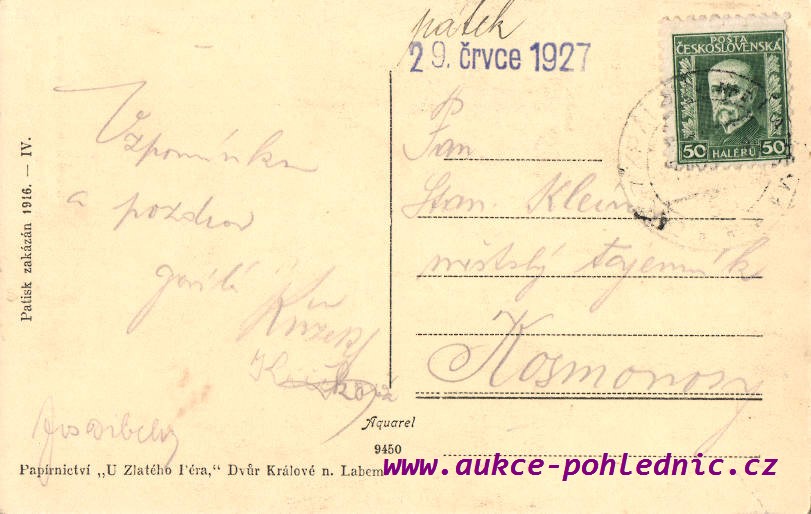 pátek
29. črvce 1927
POŠTA
ČESKOSLOVENSKÁ
50 HALÉŘŮ 50
Patisk zakázán 1916. — IV.
Vzpomínku
a pozdrav
Pan
Stan. Klein
městský tajemník
Kosmonosy
Aquarel
9450
Papírnictví „U Zlatého Péra,“ Dvůr Králové n. Labem
www.aukce-pohlednic.cz